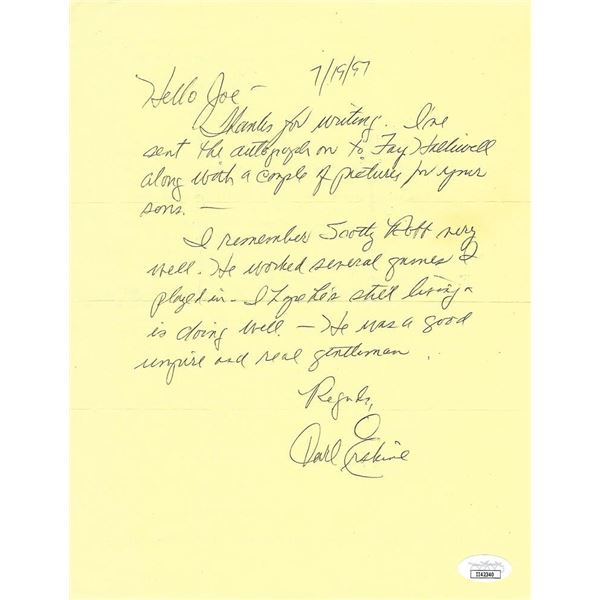 7/19/97
Hello Joe -
Thanks for writing. I've
sent the autograph on to Fay Halliwell
along with a couple of pictures for your
sons. -
I remember Scotty Robb very
well. He worked several games I
played in - I hope he's still living &
is doing well. - He was a good
umpire and real gentleman.
Regards,
Carl Erskine
II42340